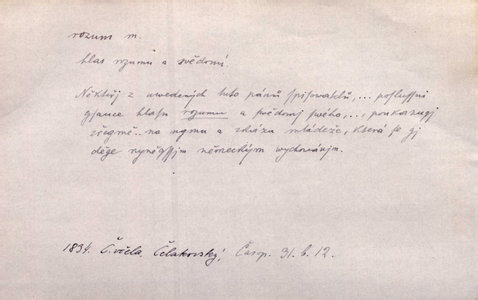 rozum m.
hlas rozumu a svědomí.
Někteřj z uwedených tuto pánů spisowatelů,... poslussni
gsauce hlasu rozumu a swědomj swého,... poukazugj
zřegmě.. na ugmu a zkázu mládeže, která se gj
děge nyněgssjm německým wychowánjm.
1834. Č. včela. Čelakovský, Časp. 31. b. 12.